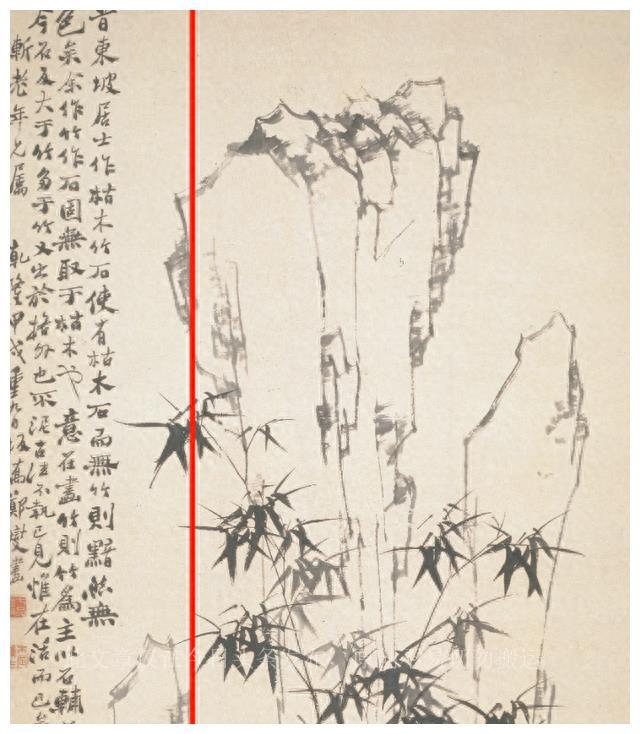 昔東坡居士作枯木竹石使有枯木石而無竹則黯然無
色矣余作竹作石固無取于枯木也意在畫竹則竹為主以石輔
今石反大于竹多于竹又出於格外也不泥古法不執己見惟在活而已矣
老年兄屬 乾隆甲戌重九日板橋鄭燮畫